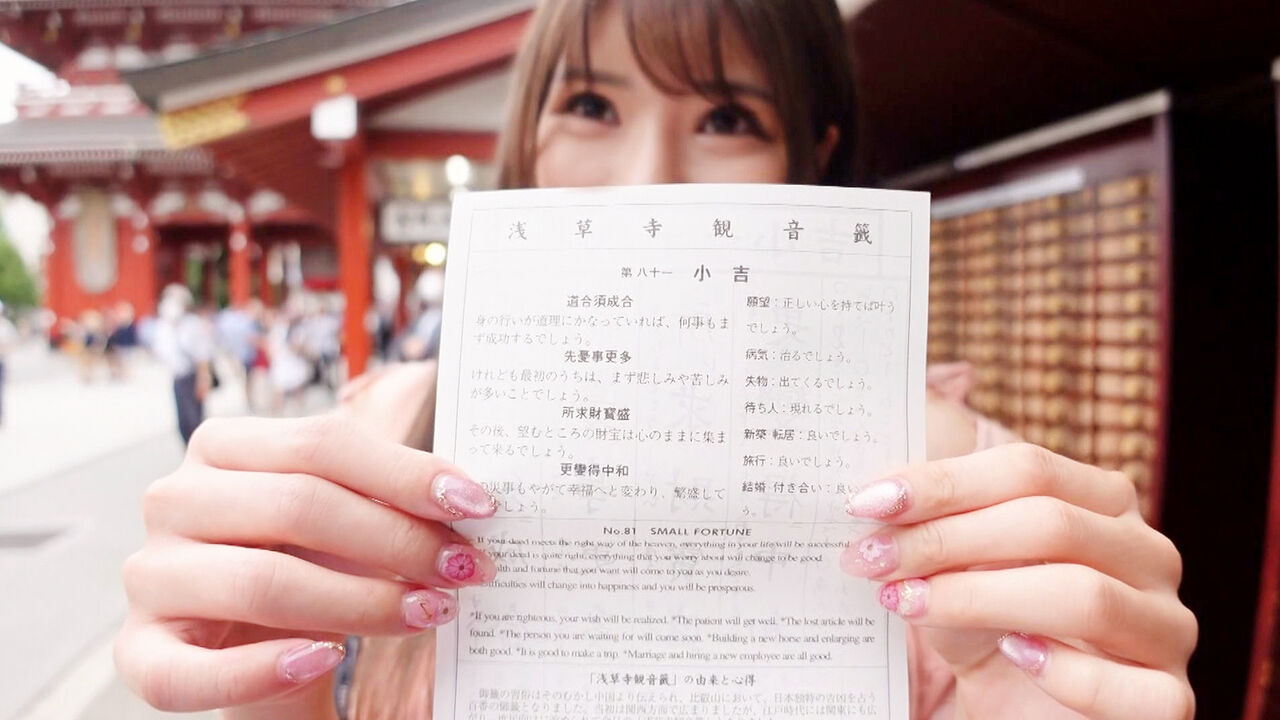 浅草寺観音籤
第八十一 小吉
道合須成合
身の行いが道理にかなっていれば、何事もま
ず成功するでしょう。
先憂事更多
けれども最初のうちは、まず悲しみや苦しみ
が多いことでしょう。
所求財寳盛
その後、望むところの財宝は心のままに集ま
って来るでしょう。
更變得中和
災事もやがて幸福へと変わり、繁盛して
しょう。
願望:正しい心を持てば叶う
でしょう。
病気:治るでしょう。
失物:出てくるでしょう。
待ち人:現れるでしょう。
新築 転居:良いでしょう。
旅行:良いでしょう。
結婚 付き合い:良い
う。
No.81 SMALL FORTUNE
If your deed meets the right way of the heaven, everything in your life will be successful
If your deed is quite right, everything that you worry about will change to be good.
alth and fortune that you want will come to you as you desire.
fficulties will change into happiness and you will be prosperous.
*If you are righteous, your wish will be realized. *The patient will get well. *The lost article will be
found. *The person you are waiting for will come soon. *Building a new horse and enlarging are
both good. *It is good to make a trip. *Marriage and hiring a new employee are all good.
「浅草寺観音籤」の由来と心得
御籤の習俗はそのむかし中国より伝えられ、比叡山において、日本独特の吉凶を占う
百番の御籤となりました。当初は関西方面で広まりましたが、江戸時代には関東にも広